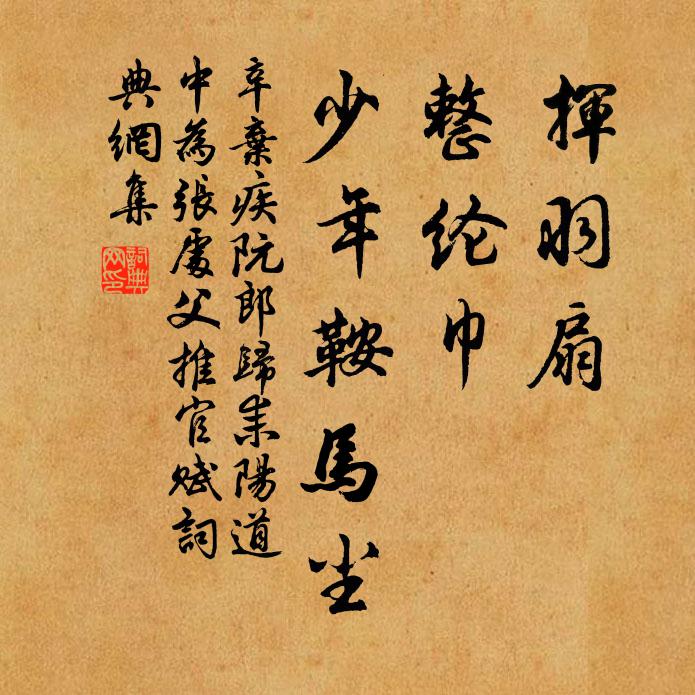 揮羽扇
整纶巾
少年鞍馬尘
辛棄疾阮郎歸耒陽道
中為張處父推官賦詞
典網集
詞典網印